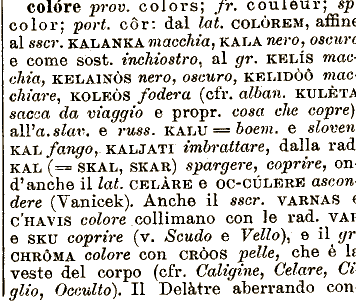 colóre prov. colors; fr. couleur; sp
color; port. côr: dal lat. COLÒREM, affine
al sscr. KALANKA macchia, KALA nero, oscuro
e come sost. inchiostro, al gr. KELÌS mac-
chia, KELAINÒS nero, oscuro, KELIDÒÔ mac-
chiare, KOLEÒS fodera (cfr. alban. KULÈTA
sacca da viaggio e propr. cosa che copre)
all'a.slav. e russ. KALU = boem. e sloven
KAL fango, KALJATI imbrattare, dalla rad
KAL (= SKAL, SKAR) spargere, coprire, on-
d'anche il lat. CELÀRE e OC-CÚLERE ascon-
dere (Vanicek). Anche il sscr. VARNAS e
C'HAVIS colore collimano con le rad. VAR
e SKU coprire (v. Scudo e Vello), e il gr
CHRÔMA colore con CRÒOS pelle, che è la
veste del corpo (cfr. Caligine, Celare, Ci
glio, Occulto). Il Delàtre aberrando con